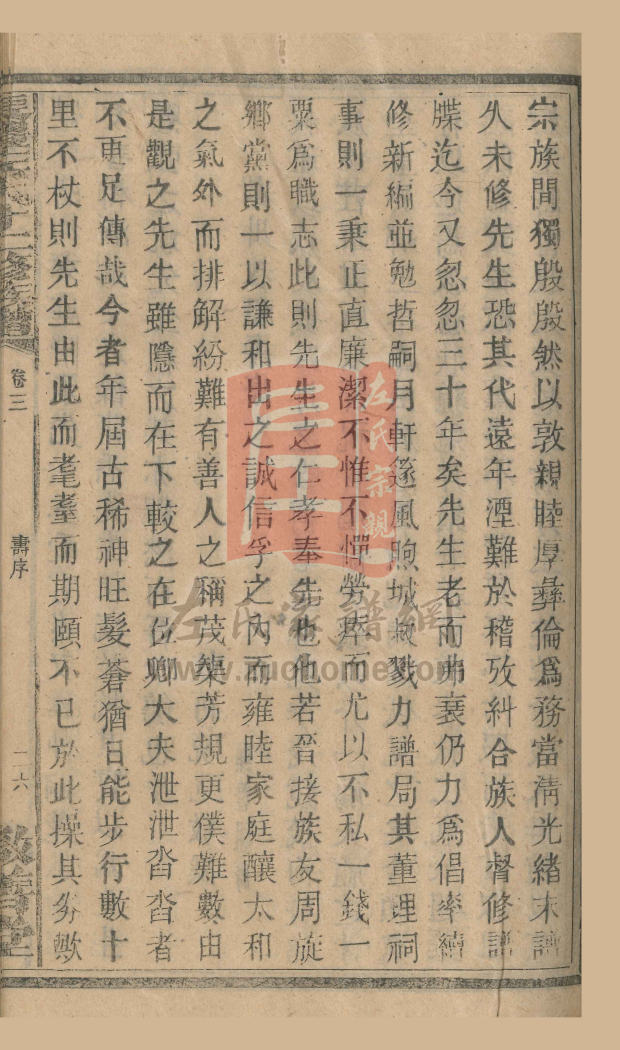 宗族間獨殷殷然以敦親睦厚彝倫爲務當淸光緒末譜
久未修先生恐其代遠年湮難於稽攷糾合族人督修譜
牒迄今又忽忽三十年矣先生老而弗衰仍力爲倡率續
修新編並勉哲嗣月軒遂風煦城叔戮力譜局其董理祠
事則一秉正直廉潔不惟不憚勞瘁而尤以不私一錢一
粟爲職志此則先生之仁孝奉先也他若晉接族友周旋
鄉黨則一以謙和出之誠信孚之內而雍睦家庭釀太和
之氣外而排解紛難有善人之稱茂榘芳規更僕難數由
是觀之先生雖隱而在下較之在位卿大夫泄泄沓沓者
不更足傳哉今者年屆古稀神旺髮蒼猶日能步行數十
里不杖則先生由此而耄耋而期頤不已於此操其券歟
卷三
壽序
二六
左氏宗親
左氏宗譜網
www.zuohome.com